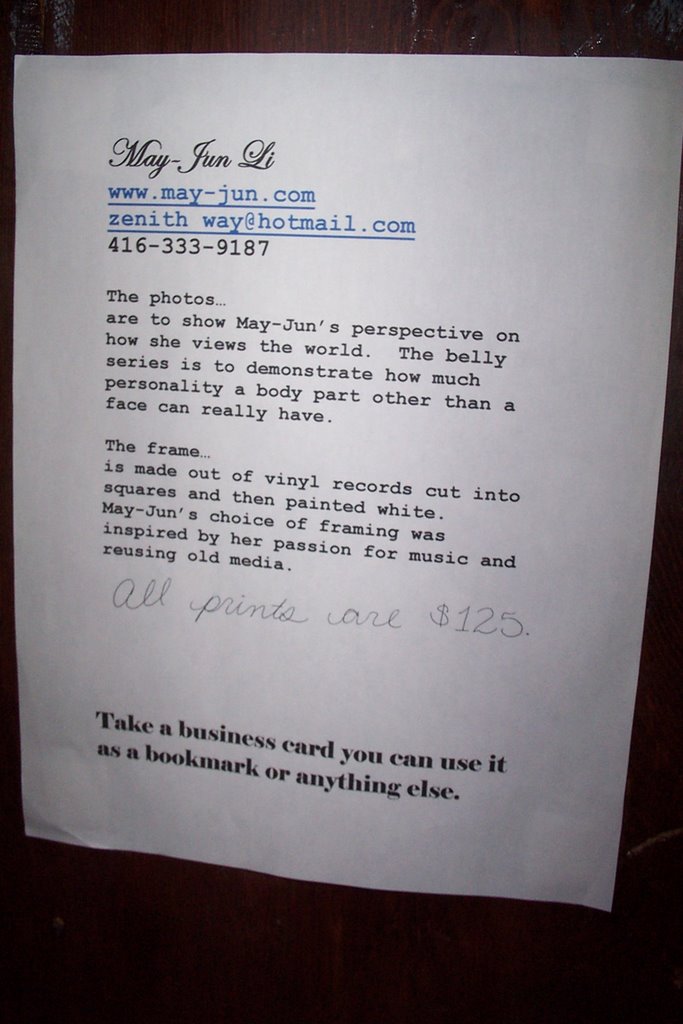 May-Jun Li
www.may-jun.com
zenith way@hotmail.com
416-333-9187
The photos…
are to show May-Jun's perspective on
how she views the world. The belly
series is to demonstrate how much
personality a body part other than a
face can really have.
The frame…
is made out of vinyl records cut into
squares and then painted white.
May-Jun's choice of framing was
inspired by her passion for music and
reusing old media.
All prints are $125.
Take a business card you can use it
as a bookmark or anything else.